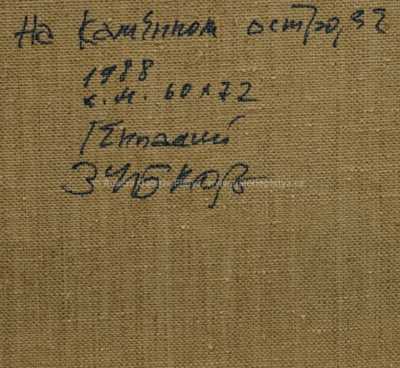 На Каменном острове
1988
х.м. 60x72
Геннадий
ЗУБКОВ